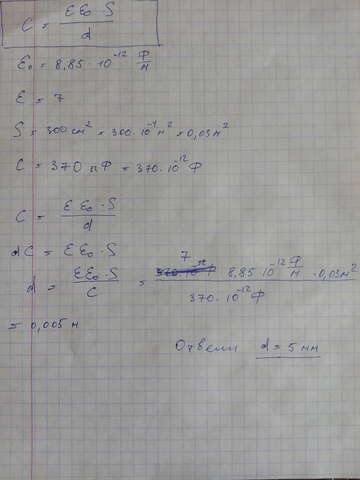 C = εε₀·S / d
ε₀ = 8,85 · 10⁻¹² Ф/м
ε = 7
S = 300 см² = 300·10⁻⁴ м² = 0,03 м²
C = 370 пФ = 370·10⁻¹² Ф
C = εε₀·S / d
dC = εε₀·S
d = εε₀·S / C = 7 · 8,85·10⁻¹² Ф/м · 0,03 м² / 370·10⁻¹² Ф
= 0,005 м
Ответ: d = 5 мм